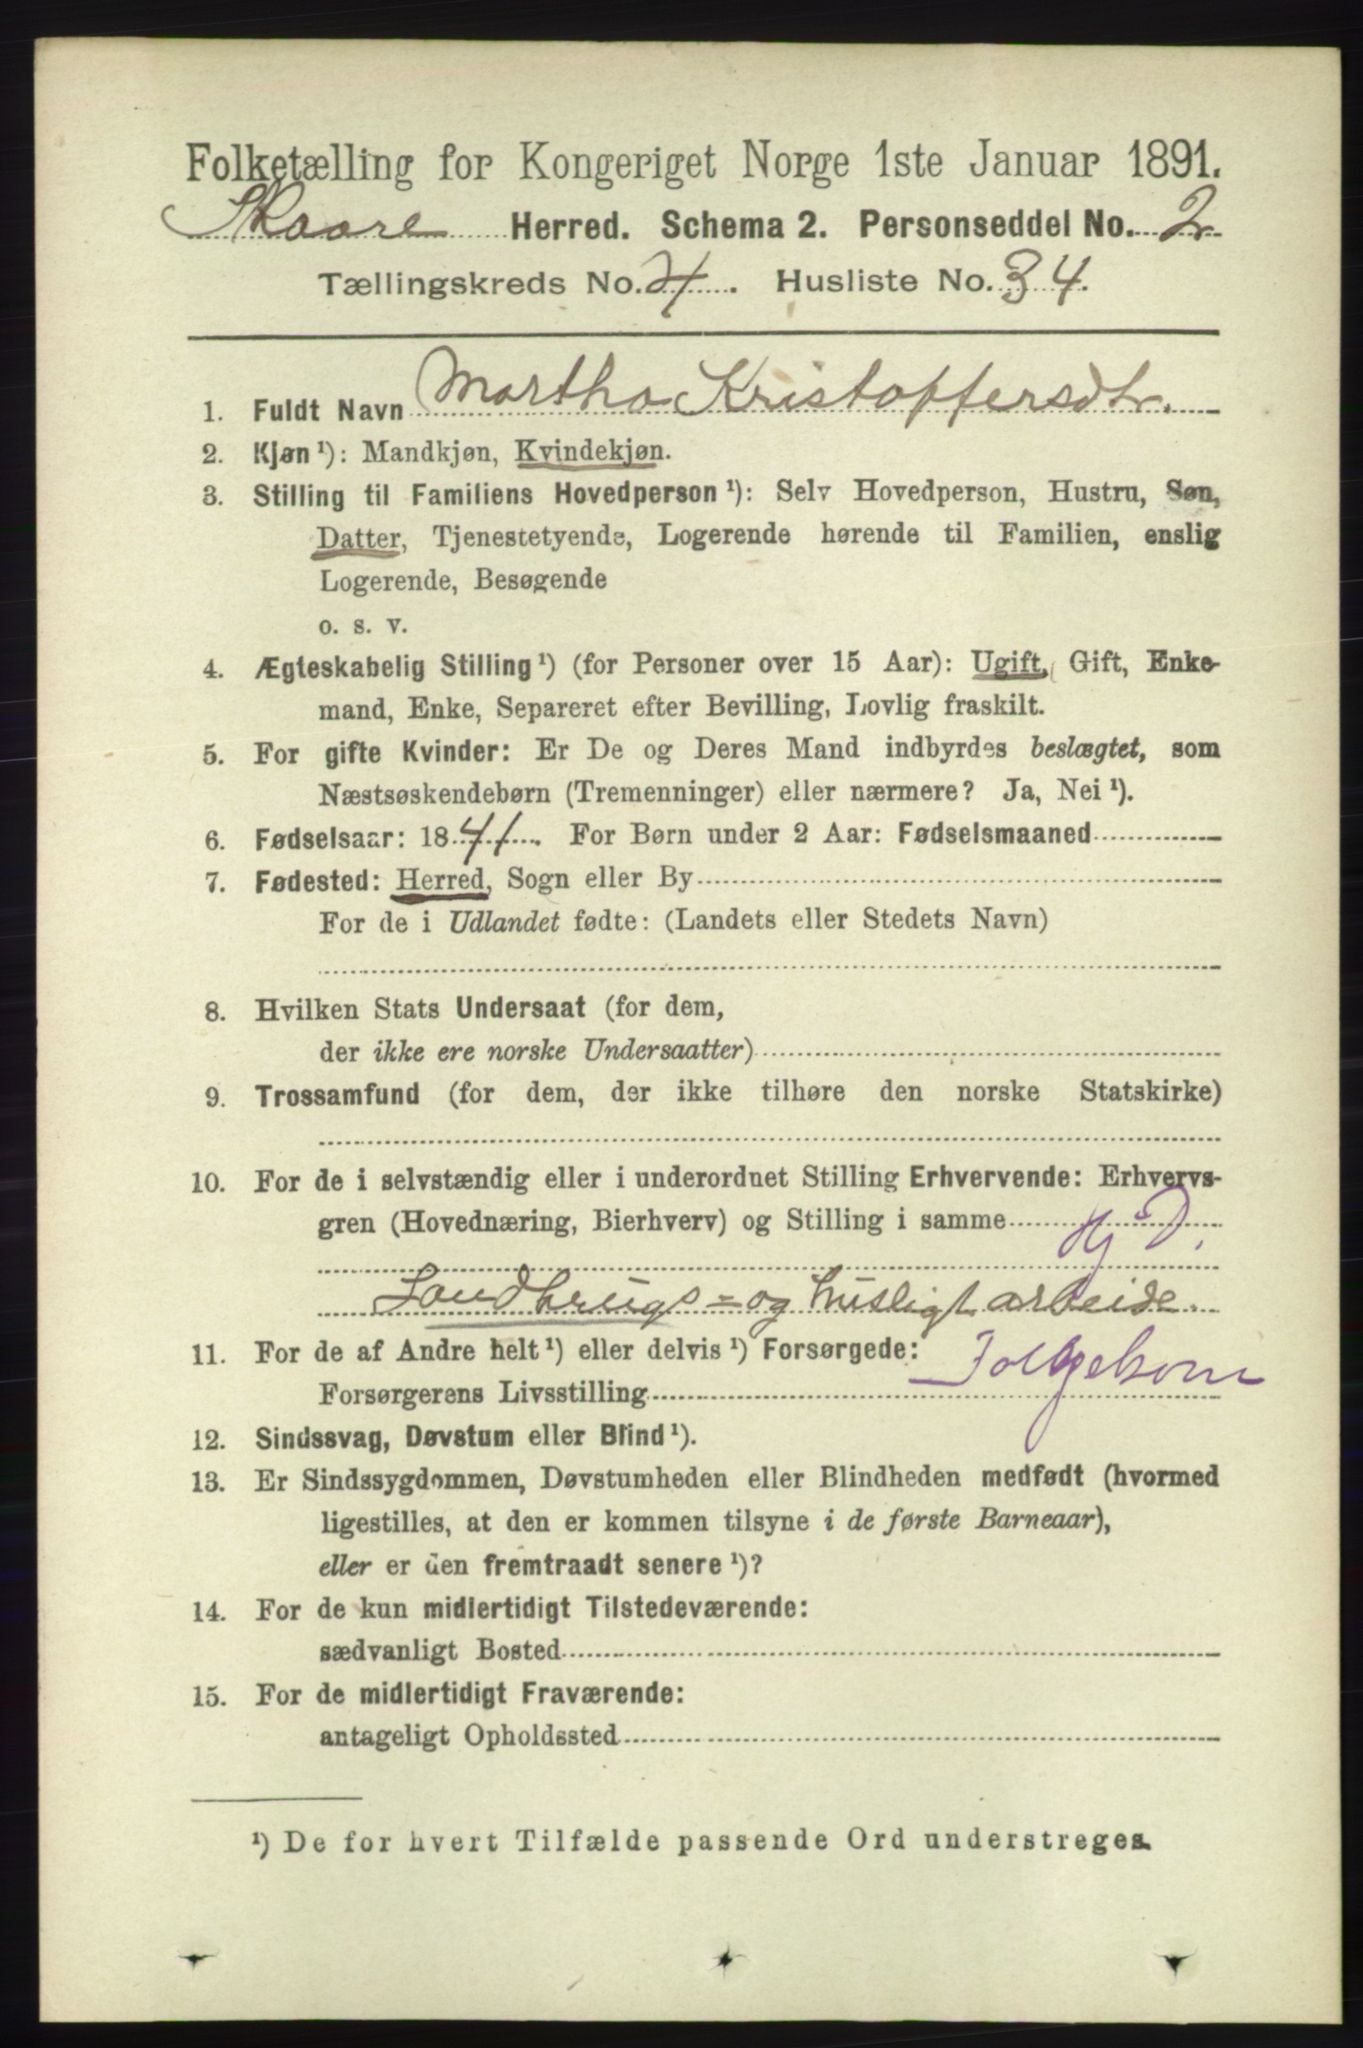 Folketælling for Kongeriget Norge 1ste Januar 1891.
Skaare Herred. Schema 2. Personseddel No. 2
Tællingskreds No. 4. Husliste No. 34.
1. Fuldt Navn Martha Kristoffersdtr.
2. Kjøn ¹): Mandkjøn, Kvindekjøn.
3. Stilling til Familiens Hovedperson ¹): Selv Hovedperson, Hustru, Søn,
Datter, Tjenestetyende, Logerende hørende til Familien, enslig
Logerende, Besøgende
o. s. v.
4. Ægteskabelig Stilling ¹) (for Personer over 15 Aar): Ugift, Gift, Enke-
mand, Enke, Separeret efter Bevilling, Lovlig fraskilt.
5. For gifte Kvinder: Er De og Deres Mand indbyrdes beslægtet, som
Næstsøskendebørn (Tremenninger) eller nærmere? Ja, Nei ¹).
6. Fødselsaar: 1841. For Børn under 2 Aar: Fødselsmaaned
7. Fødested: Herred, Sogn eller By
For de i Udlandet fødte: (Landets eller Stedets Navn)
8. Hvilken Stats Undersaat (for dem,
der ikke ere norske Undersaatter)
9. Trossamfund (for dem, der ikke tilhøre den norske Statskirke)
10. For de i selvstændig eller i underordnet Stilling Erhvervende: Erhvervs-
gren (Hovednæring, Bierhverv) og Stilling i samme
Hj D.
Landbrugs= og husligt arbeide.
11. For de af Andre helt ¹) eller delvis ¹) Forsørgede:
Forsørgerens Livsstilling
12. Sindssvag, Døvstum eller Blind ¹).
13. Er Sindssygdommen, Døvstumheden eller Blindheden medfødt (hvormed
ligestilles, at den er kommen tilsyne i de første Barneaar),
eller er den fremtraadt senere ¹)?
14. For de kun midlertidigt Tilstedeværende:
sædvanligt Bosted
15. For de midlertidigt Fraværende:
antageligt Opholdssted
¹) De for hvert Tilfælde passende Ord understreges.